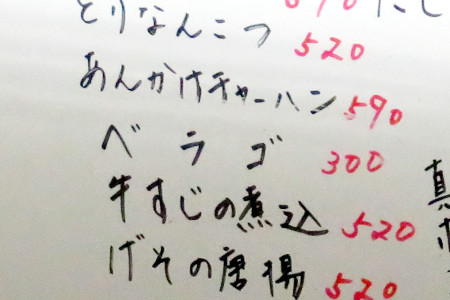 とりなんこつ 520
あんかけチャーハン 590
ベラゴ 300
牛すじの煮込 520
げその唐揚 520